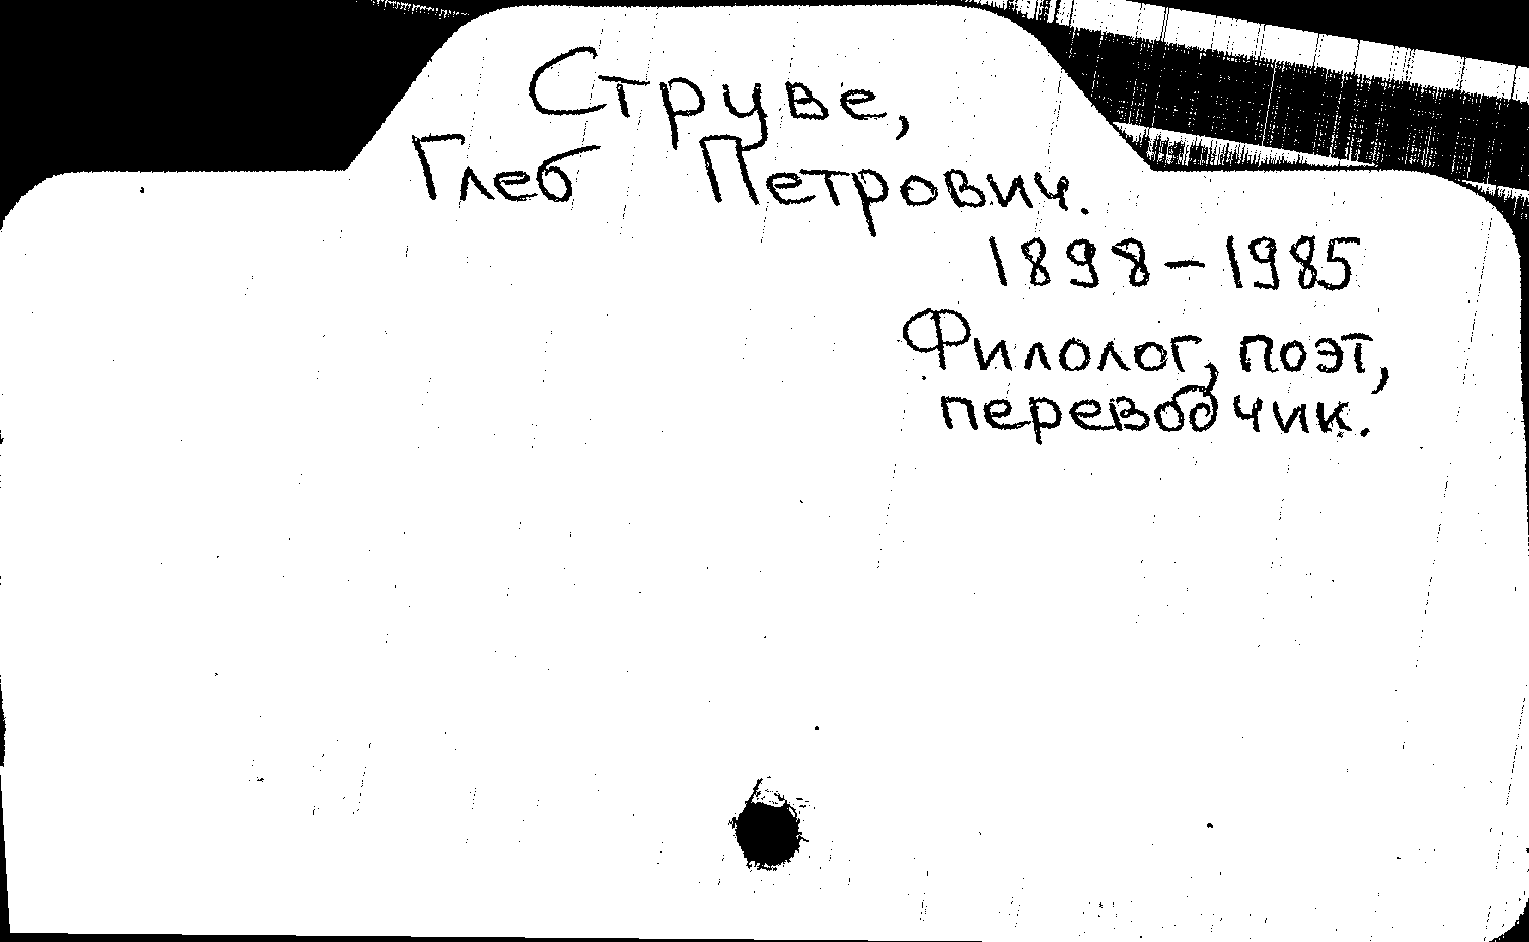 Струве,
Глеб Петрович.
1898-1985
Филолог, поэт,
переводчик.